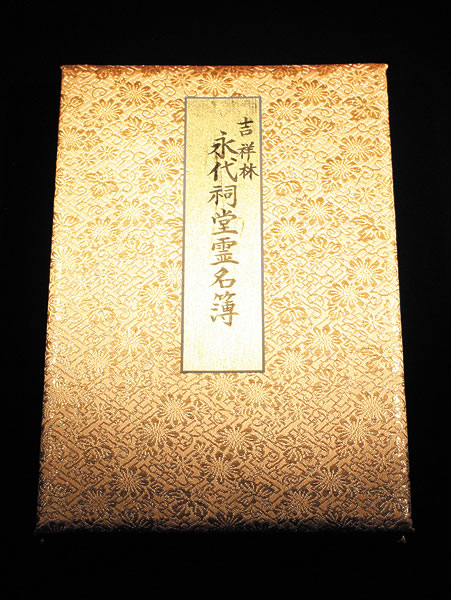 吉祥林
永代祠堂霊名簿